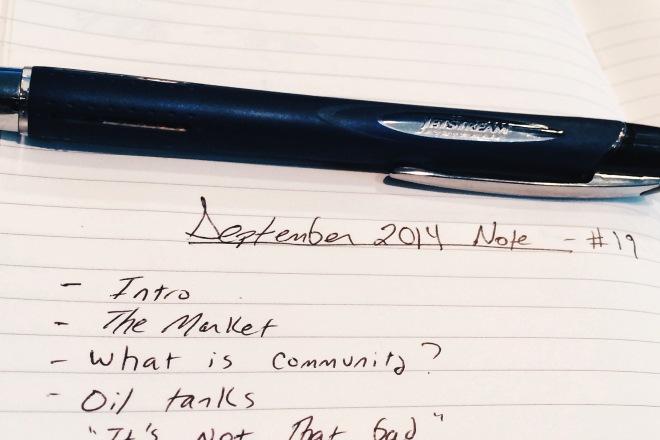 JETSTREAM
September 2014 Note - #19
- Intro
- The Market
- What is Community?
- Oil tanks
"It's Not That bad"